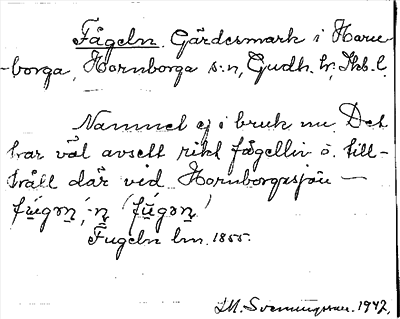 Fågeln. Gärdesmark i Horn-
-borga, Hornborga s:n, Gudh. hr, Skb. l.
Namnet ej i bruk nu. Det
har väl avsett rikt fågelliv o. till-
håll där vid Hornborgasjön —
Fugeln lm. 1855.
I.M. Svenningsson. 1942.